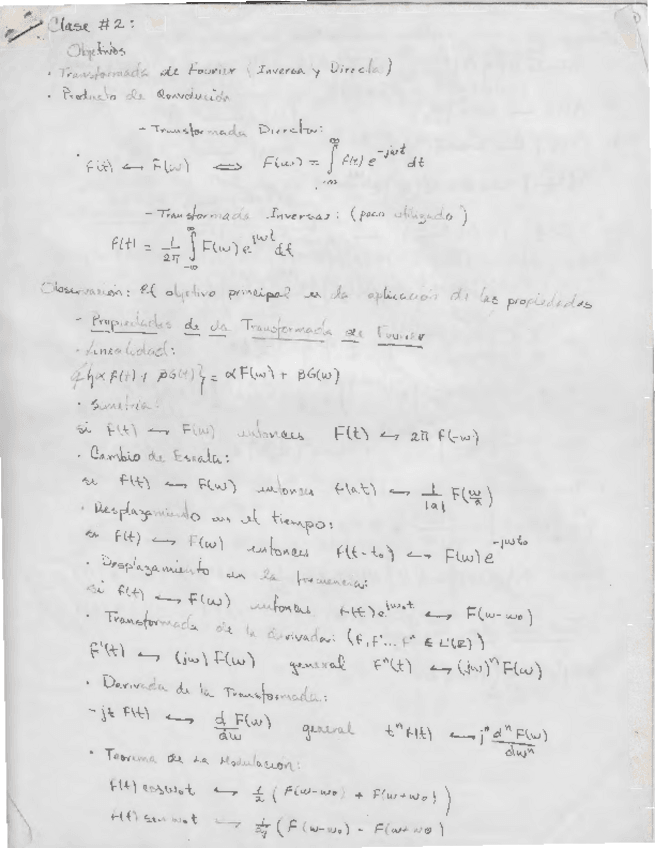 Clase #2:
Objetivos
· Transformada de Fourier (Inversa y Directa)
· Producto de Convolución
- Transformada Directa:
· f(t) ↔ F(w) ⇔ F(w) = ∫_{-∞}^{∞} f(t) e^{-jwt} dt
- Transformada Inversa: (poco utilizado)
f(t) = 1/2π ∫_{-∞}^{∞} F(w) e^{jwt} dt
Observación: El objetivo principal es la aplicación de las propiedades
- Propiedades de la Transformada de Fourier
- Linealidad:
{α f(t) + βG(t)} = α F(w) + βG(w)
· Simetria:
si f(t) ↔ F(w) entonces F(t) ↔ 2π f(-w)
· Cambio de Escala:
si f(t) ↔ F(w) entonces f(at) ↔ 1/|a| F(w/a)
· Desplazamiento en el tiempo:
si f(t) ↔ F(w) entonces f(t-t₀) ↔ F(w) e^{-jwt₀}
· Desplazamiento en la frecuencia:
si f(t) ↔ F(w) entonces f(t) e^{jw₀t} ↔ F(w-w₀)
· Transformada de la derivada: (f, f'... fⁿ ∈ L'(R))
f'(t) ↔ (jw) F(w) general fⁿ(t) ↔ (jw)ⁿ F(w)
· Derivada de la Transformada:
-jt f(t) ↔ d F(w)/dw general tⁿ f(t) ↔ jⁿ dⁿ F(w)/dwⁿ
· Teorema de la Modulación:
f(t) cosw₀t ↔ 1/2 (F(w-w₀) + F(w+w₀))
f(t) senw₀t ↔ 1/2j (F(w-w₀) - F(w+w₀))